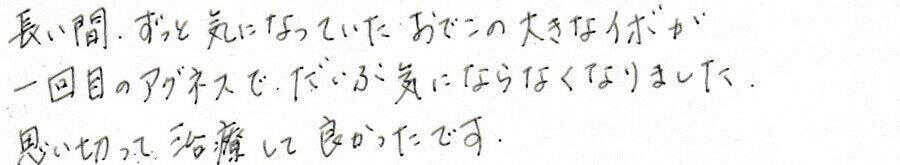 長い間、ずっと気になっていたおでこの大きなイボが
一回目のアグネスで、だいぶ気にならなくなりました.
思い切って治療して良かったです.